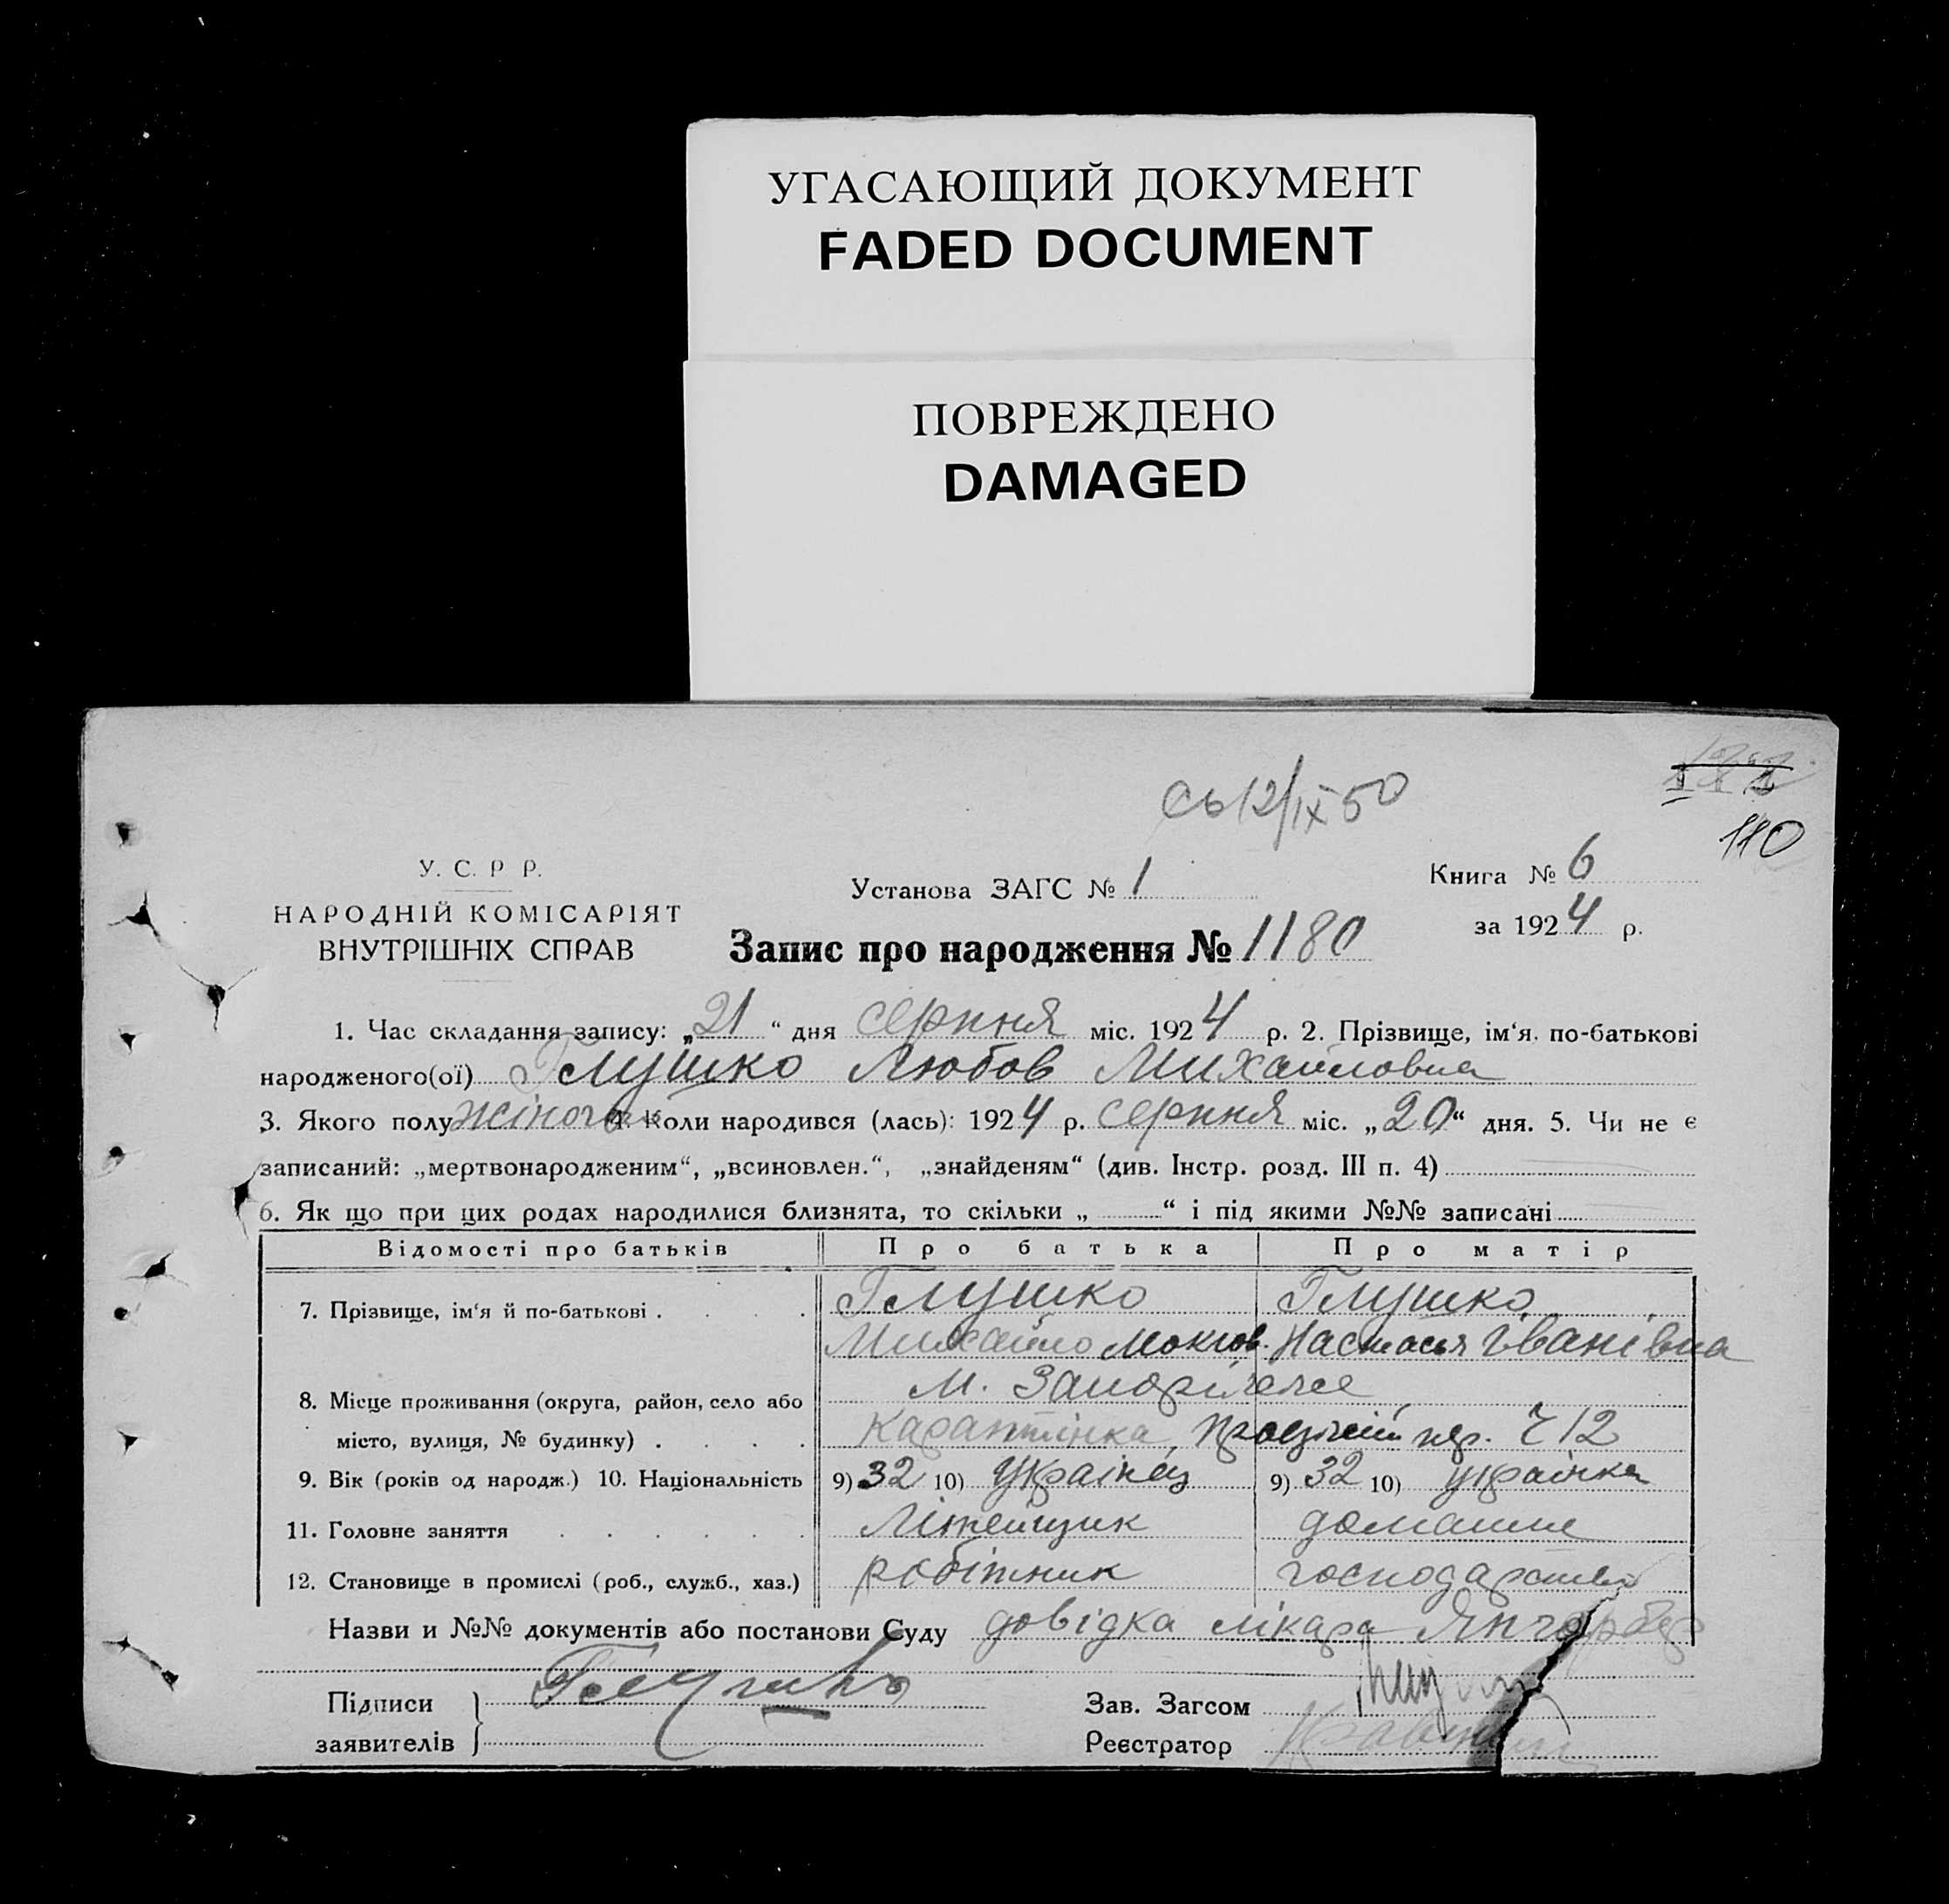 УГАСАЮЩИЙ ДОКУМЕНТ
FADED DOCUMENT
ПОВРЕЖДЕНО
DAMAGED
12/IX 50
110
У. С. Р Р.
НАРОДНІЙ КОМІСАРІЯТ
ВНУТРІШНІХ СПРАВ
Установа ЗАГС № 1
Книга № 6
за 1924 р.
Запис про народження № 1180
1. Час складання запису: „21“ дня серпня міс. 1924 р. 2. Прізвище, ім‘я. по-батькові
народженого(ої) Глушко Любов Михайловна
3. Якого полу жіночого 4. Коли народився (лась): 1924 р. серпня міс. „20“ дня. 5. Чи не є
записаний: „мертвонародженим“, „всиновлен.“, „знайденям“ (див. Інстр. розд. III п. 4)
6. Як що при цих родах народилися близнята, то скільки „ “ і під якими №№ записані
Відомості про батьків Про батька Про матір
7. Прізвище, ім‘я й по-батькові . Глушко Глушко
Михайло Мокіов. Настасья Іванівна
8. Місце проживання (округа, район, село або м. Запоріжжє
місто, вулиця, № будинку) . Карантінка, пер. Ч 12
9. Вік (років од народж.) 10. Національність 9) 32 10) Українец 9) 32 10) українка
11. Головне заняття Літейщик домашнє
12. Становище в промислі (роб., служб., хаз.) робітник господарство
Назви и №№ документів або постанови Суду довідка лікара
Підписи Глушко
заявителів
Зав. Загсом
Реєстратор